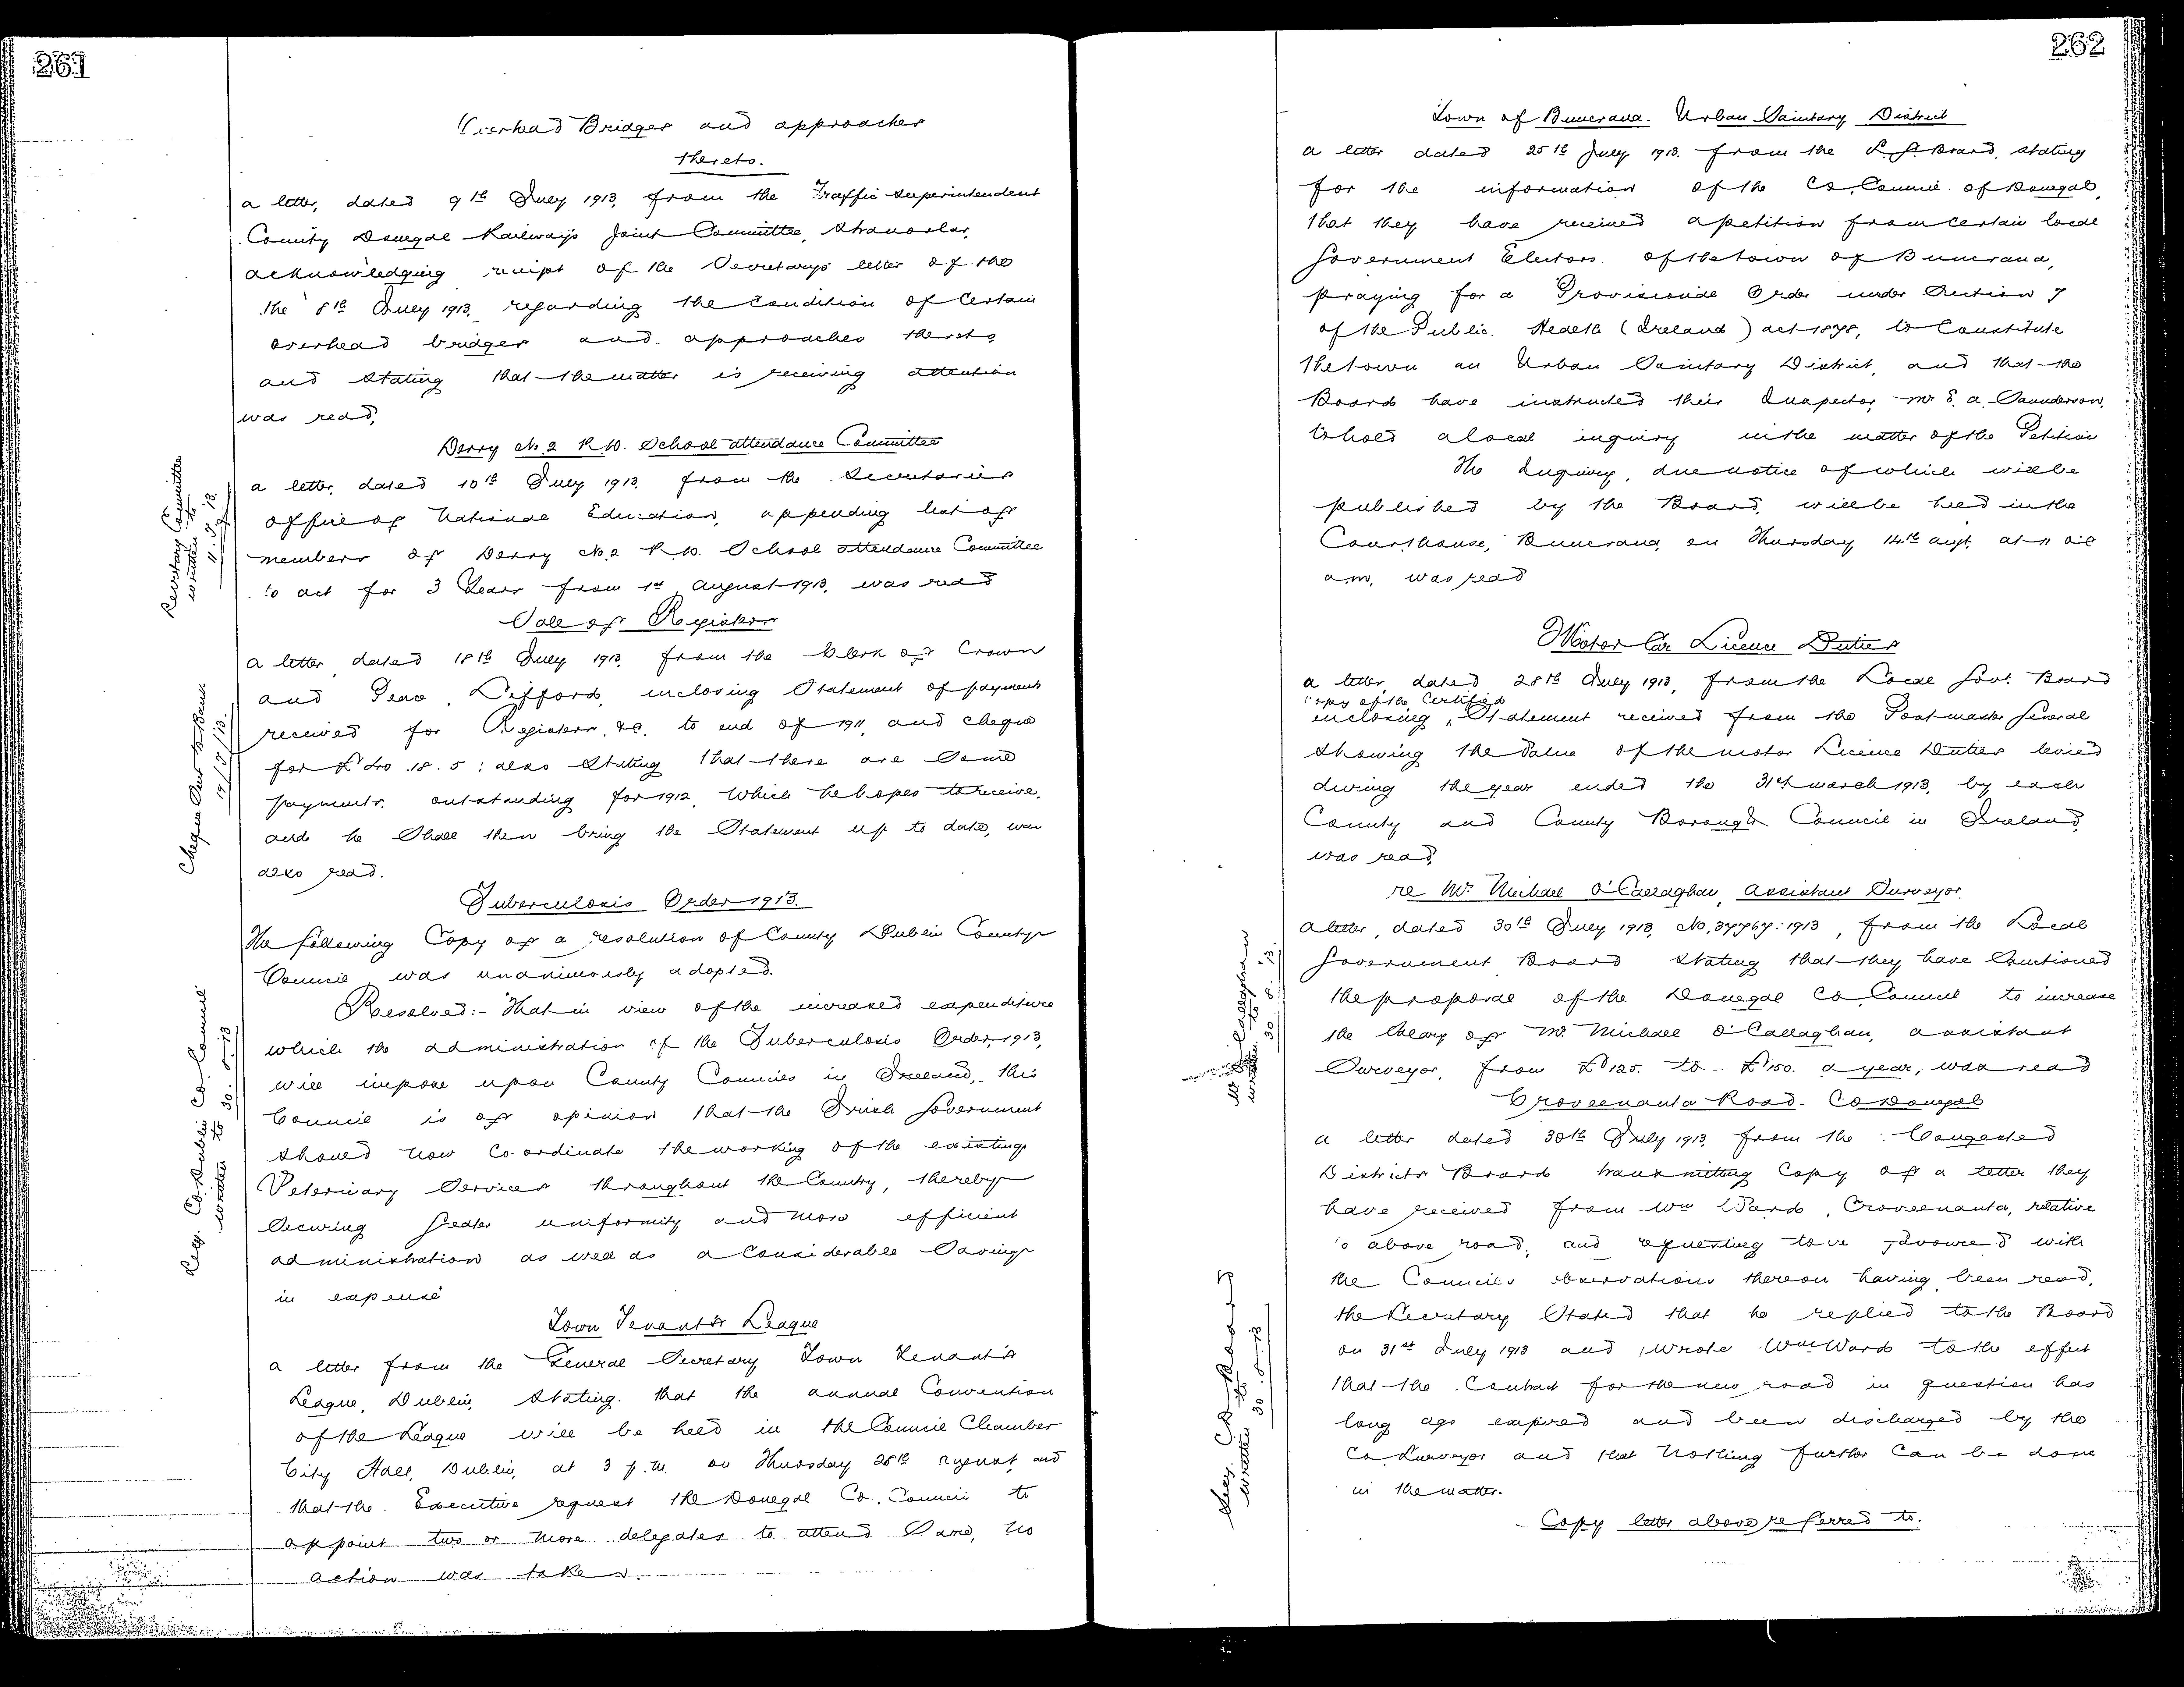 261
Overhead Bridges and approaches
thereto.
a letter, dated 9th July 1913, from the Traffic Superintendent
County Donegal Railways Joint Committee, Stranorlar,
acknowledging receipt of the Secretary's letter of the
the 8th July 1913, regarding the condition of certain
overhead bridges and approaches thereto
and stating that the matter is receiving attention
was read,
Derry No. 2 R.D. School attendance Committee
Secretary Committee
written to
11.9.13.
a letter, dated 10th July 1913, from the Secretaries
office of National Education, appending list of
members of Derry No. 2 R.D. School attendance Committee
to act for 3 Years from 1st August 1913, was read
Sale of Registers
Cheque sent to Bank
19/7/13.
a letter dated 18th July 1913, from the Clerk of Crown
and Peace, Lifford, inclosing Statement of payments
received for Registers, &c. to end of 1911, and cheque
for £40.18.5: also stating that there are Some
payments outstanding for 1912, which he hopes to receive,
and he Shall then bring the Statement up to date, was
also read.
Tuberculosis Order 1913.
Secy. Co Dublin Co Council
written to 30.8.13
The following Copy of a resolution of County Dublin County
Council was unanimously adopted.
Resolved:- "That in view of the increased expenditure
which the administration of the Tuberculosis Order, 1913,
will impose upon County Councils in Ireland, this
Council is of opinion that the Irish Government
should now co-ordinate the working of the existing
Veterinary Services throughout the Country, thereby
Securing greater uniformity and more efficient
administration as well as a considerable Saving
in expense
Town Tenants League
a letter from the General Secretary Town Tenants
League, Dublin, stating that the annual Convention
of the League will be held in the Council Chamber
City Hall, Dublin, at 3 p.m. on Thursday 28th August, and
that the Executive request the Donegal Co. Council to
appoint two or more delegates to attend Same, no
action was taken.
262
Town of Buncrana. Urban Sanitary District
a letter dated 25th July 1913. from the L. G. Board, stating
for the information of the Co. Council of Donegal,
that they have received a petition from certain local
Government Electors of the town of Buncrana,
praying for a Provisional Order under Section 7
of the Public Health (Ireland) act 1878, to Constitute
the town an Urban Sanitary District, and that the
Board have instructed their Inspector, Mr E. A. Saunderson,
to hold a local inquiry in the matter of the Petition
The Inquiry, due notice of which will be
published by the Board, will be held in the
Courthouse, Buncrana, on Thursday 14th augt. at 11 o'c
a.m. was read
Motor Car Licence Duties
a letter, dated 28th July 1913, from the Local Govt. Board
copy of the Certified
inclosing Statement received from the Postmaster General
showing the value of the motor Licence Duties levied
during the year ended the 31st march 1913, by each
County and County Borough Council in Ireland,
was read,
re Mr Michael O'Callaghan, assistant Surveyor.
Mr O'Callaghan
written to
30.8.13.
a letter, dated 30th July 1913, No. 37767:1913, from the Local
Government Board stating that they have Sanctioned
the proposal of the Donegal Co. Council to increase
the Salary of Mr. Michael O'Callaghan, assistant
Surveyor, from £125. to £150. a year, was read
Croveenanta Road. Co Donegal
Secy. C. D. Board
written to
30.8.13
a letter dated 30th July 1913, from the Congested
Districts Board transmitting Copy of a letter they
have received from Wm Ward, Croveenanta, relative
to above road, and requesting to be favoured with
the Council's observations thereon having been read,
the Secretary Stated that he replied to the Board
on 31st July 1913 and wrote Wm Ward to the effect
that the Contract for the new road in question has
long ago expired and been discharged by the
Co Surveyor and that Nothing further Can be done
in the matter.
Copy letter above referred to.